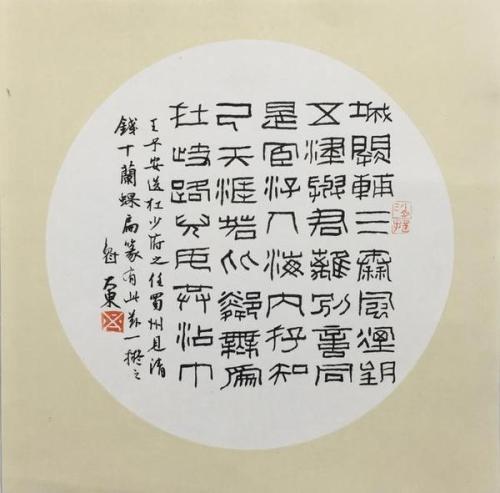 城闕輔三秦風煙朢
五津與君離別意同
是宦游人海内存知
己天涯若比鄰無爲
在歧路兒女共沾巾
王子安送杜少府之任蜀州見清
錢十蘭螺扁篆有此一擬之
大東